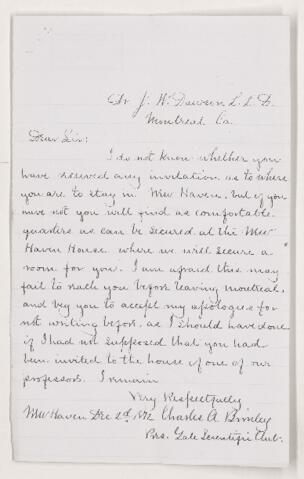 Dr J. W. Dawson L.L.D.
Montreal Ca.
Dear Sir:
I do not know whether you
have received any invitation as to where
you are to stay in New Haven, but if you
have not you will find as comfortable
quarters as can be secured at the "New
Haven House" where we will secure a
room for you. I am afraid this may
fail to reach you before leaving Montreal,
and beg you to accept my apologies for
not writing before, as I should have done
if I had not supposed that you had
been invited to the house of one of our
professors. I remain
Very Respectfully
New Haven Dec 2d 1872 Charles A. Brinley
Pres. Yale Scientific Club.